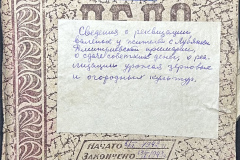 ДЕЛО
Сведения о реквизиции
валенок у жителей с. Лубянки
Дмитриевской армией,
о сдаче советских денег, о реа-
лизации урожая зерновых
и огородных культур.
НАЧАТО
ЗАКОНЧЕНО